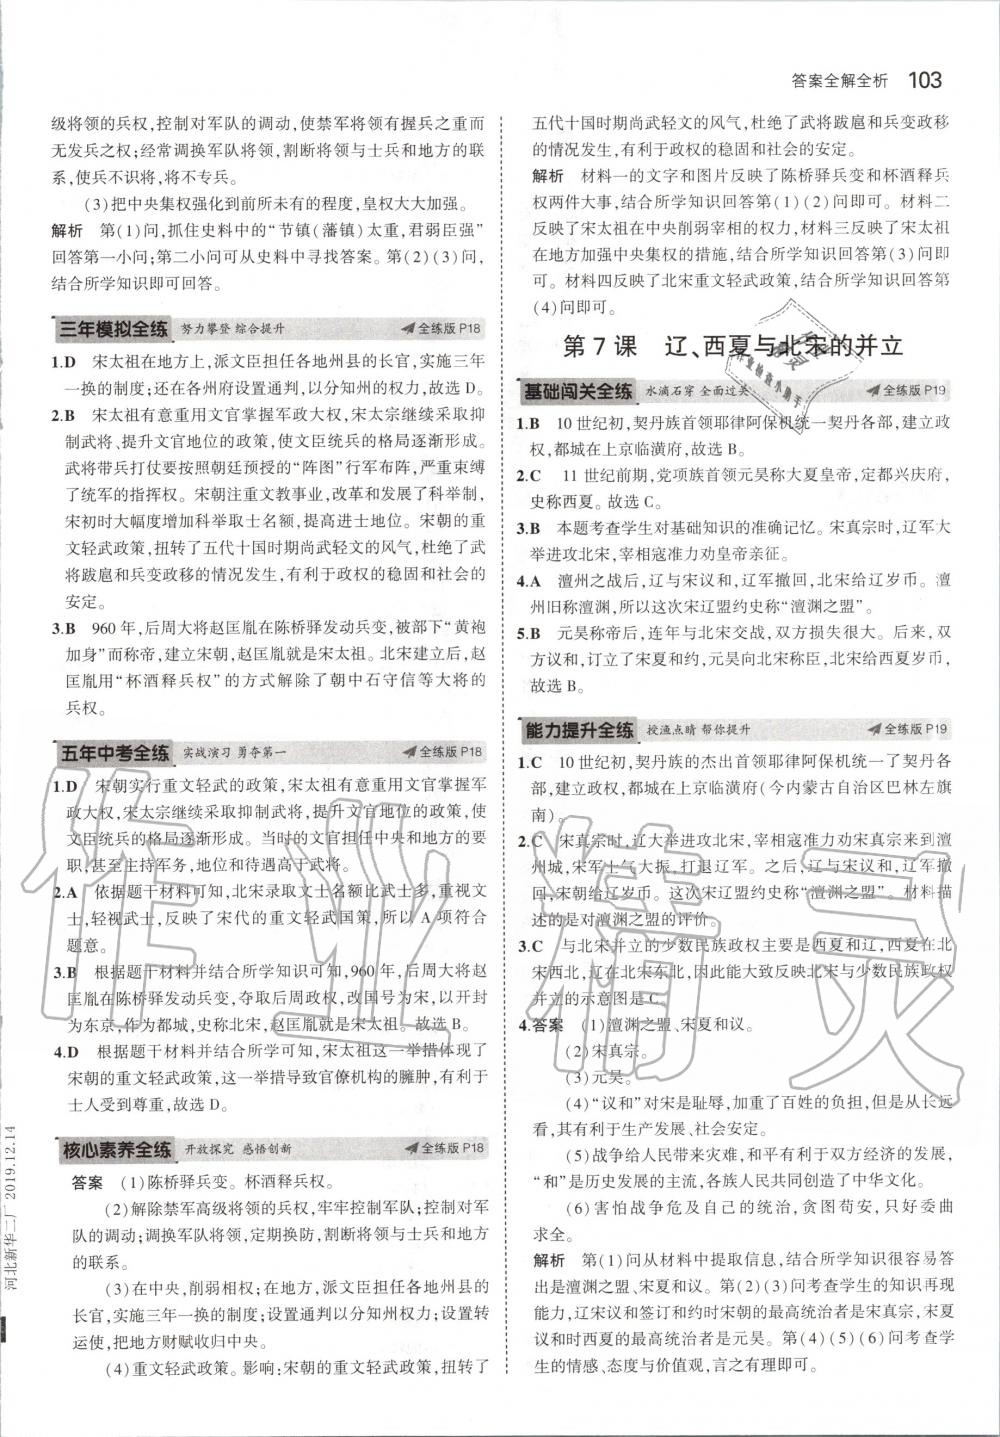 答案全解全析 103
级将领的兵权,控制对军队的调动,使禁军将领有握兵之重而
无发兵之权;经常调换军队将领,割断将领与士兵和地方的联
系,使兵不识将,将不专兵。
(3)把中央集权强化到前所未有的程度,皇权大大加强。
解析 第(1)问,抓住史料中的“节镇(藩镇)太重,君弱臣强”
回答第一小问;第二小问可从史料中寻找答案。第(2)(3)问,
结合所学知识即可回答。
三年模拟全练 努力攀登 综合提升 全练版 P18
1.D 宋太祖在地方上,派文臣担任各地州县的长官,实施三年
一换的制度;还在各州府设置通判,以分知州的权力,故选 D。
2.B 宋太祖有意重用文官掌握军政大权,宋太宗继续采取抑
制武将、提升文官地位的政策,使文臣统兵的格局逐渐形成。
武将带兵打仗要按照朝廷预授的“阵图”行军布阵,严重束缚
了统军的指挥权。宋朝注重文教事业,改革和发展了科举制,
宋初时大幅度增加科举取士名额,提高进士地位。宋朝的重
文轻武政策,扭转了五代十国时期尚武轻文的风气,杜绝了武
将跋扈和兵变政移的情况发生,有利于政权的稳固和社会的
安定。
3.B 960 年,后周大将赵匡胤在陈桥驿发动兵变,被部下“黄袍
加身”而称帝,建立宋朝,赵匡胤就是宋太祖。北宋建立后,赵
匡胤用“杯酒释兵权”的方式解除了朝中石守信等大将的
兵权。
五年中考全练 实战演习 勇夺第一 全练版 P18
1.D 宋朝实行重文轻武的政策,宋太祖有意重用文官掌握军
政大权,宋太宗继续采取抑制武将,提升文官地位的政策,使
文臣统兵的格局逐渐形成。当时的文官担任中央和地方的要
职,甚至主持军务,地位和待遇高于武将。
2.A 依据题干材料可知,北宋录取文士名额比武士多,重视文
士,轻视武士,反映了宋代的重文轻武国策,所以 A 项符合
题意。
3.B 根据题干材料并结合所学知识可知,960 年,后周大将赵
匡胤在陈桥驿发动兵变,夺取后周政权,改国号为宋,以开封
为东京,作为都城,史称北宋,赵匡胤就是宋太祖。故选 B。
4.D 根据题干材料并结合所学可知,宋太祖这一举措体现了
宋朝的重文轻武政策,这一举措导致官僚机构的臃肿,有利于
士人受到尊重,故选 D。
核心素养全练 开放探究 感悟创新 全练版 P18
答案 (1)陈桥驿兵变。杯酒释兵权。
(2)解除禁军高级将领的兵权,牢牢控制军队;控制对军
队的调动;调换军队将领,定期换防,割断将领与士兵和地方
的联系。
(3)在中央,削弱相权;在地方,派文臣担任各地州县的
长官,实施三年一换的制度;设置通判以分知州权力;设置转
运使,把地方财赋收归中央。
(4)重文轻武政策。影响:宋朝的重文轻武政策,扭转了
五代十国时期尚武轻文的风气,杜绝了武将跋扈和兵变政移
的情况发生,有利于政权的稳固和社会的安定。
解析 材料一的文字和图片反映了陈桥驿兵变和杯酒释兵
权两件大事,结合所学知识回答第(1)(2)问即可。材料二
反映了宋太祖在中央削弱宰相的权力,材料三反映了宋太祖
在地方加强中央集权的措施,结合所学知识回答第(3)问即
可。材料四反映了北宋重文轻武政策,结合所学知识回答第
(4)问即可。
第 7 课 辽、西夏与北宋的并立
基础闯关全练 水滴石穿 全面过关 全练版 P19
1.B 10 世纪初,契丹族首领耶律阿保机统一契丹各部,建立政
权,都城在上京临潢府,故选 B。
2.C 11 世纪前期,党项族首领元昊称大夏皇帝,定都兴庆府,
史称西夏。故选 C。
3.B 本题考查学生对基础知识的准确记忆。宋真宗时,辽军大
举进攻北宋,宰相寇准力劝皇帝亲征。
4.A 澶州之战后,辽与宋议和,辽军撤回,北宋给辽岁币。澶
州旧称澶渊,所以这次宋辽盟约史称“澶渊之盟”。
5.B 元昊称帝后,连年与北宋交战,双方损失很大。后来,双
方议和,订立了宋夏和约,元昊向北宋称臣,北宋给西夏岁币,
故选 B。
能力提升全练 授渔点睛 帮你提升 全练版 P19
1.C 10 世纪初,契丹族的杰出首领耶律阿保机统一了契丹各
部,建立政权,都城在上京临潢府(今内蒙古自治区巴林左旗
南)。
2.C 宋真宗时,辽大举进攻北宋,宰相寇准力劝宋真宗来到澶
州城,宋军士气大振,打退辽军。之后,辽与宋议和,辽军撤
回,宋朝给辽岁币。这次宋辽盟约史称“澶渊之盟”。材料描
述的是对澶渊之盟的评价。
3.C 与北宋并立的少数民族政权主要是西夏和辽,西夏在北
宋西北,辽在北宋东北,因此能大致反映北宋与少数民族政权
并立的示意图是 C。
4.答案 (1)澶渊之盟、宋夏和议。
(2)宋真宗。
(3)元昊。
(4)“议和”对宋是耻辱,加重了百姓的负担,但是从长远
看,其有利于生产发展、社会安定。
(5)战争给人民带来灾难,和平有利于双方经济的发展,
“和”是历史发展的主流,各族人民共同创造了中华文化。
(6)害怕战争危及自己的统治,贪图苟安,只好委曲
求全。
解析 第(1)问从材料中提取信息,结合所学知识很容易答
出是澶渊之盟、宋夏和议。第(2)(3)问考查学生的知识再现
能力,辽宋议和签订和约时宋朝的最高统治者是宋真宗,宋夏
议和时西夏的最高统治者是元昊。第(4)(5)(6)问考查学
生的情感、态度与价值观,言之有理即可。
河北新华二厂 2019.12.14
作业精灵